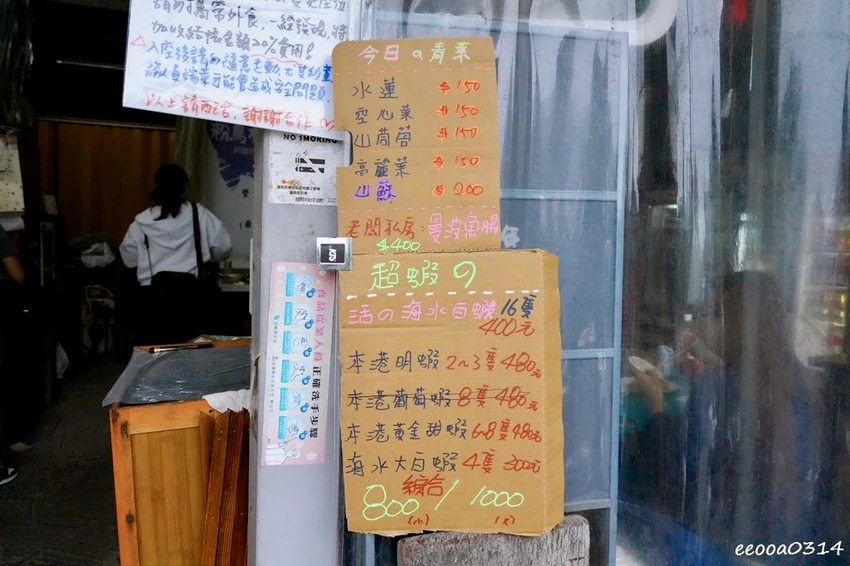 請勿攜帶外食，一經發現，將
加收結帳金額20%費用！
以上請配合，謝謝合作
NO SMOKING
今日の青菜
水蓮 $150
空心菜 $150
山茼蒿 $150
高麗菜 $150
山蘇 $200
老闆私房 曼波魚腸
$400
超蝦の
活の海水白蝦 16隻
400元
本港明蝦 2~3隻480元
本港葡萄蝦 8隻480元
本港黃金甜蝦 6~8隻480元
海水大白蝦 4隻300元
綜合
800/1000
(小) (大)
食品從業人員 正確洗手步驟
eeooa0314